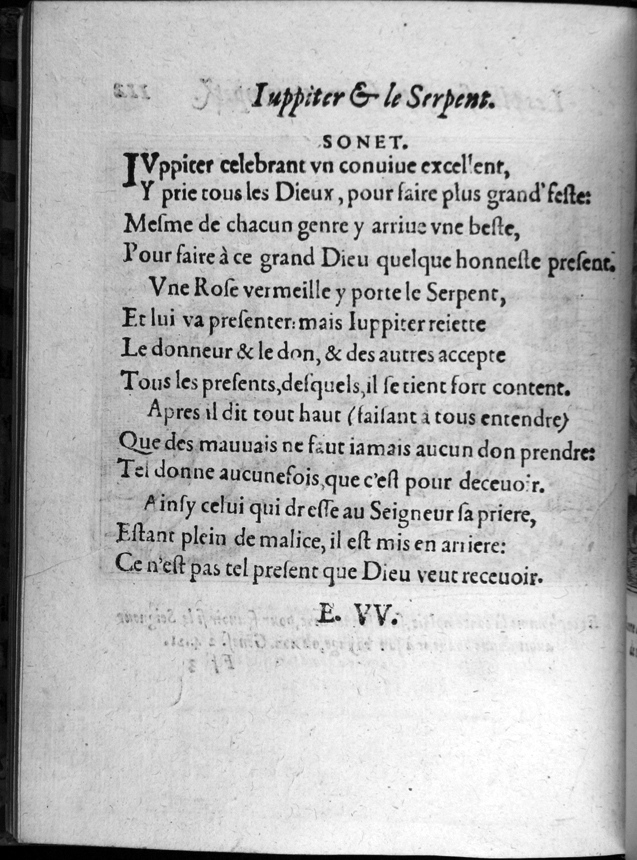 Iuppiter & le Serpent.
SONET.
IVppiter celebrant vn conuiue excellent,
Y prie tous les Dieux, pour faire plus grand' feste:
Mesme de chacun genre y arriue vne beste,
Pour faire à ce grand Dieu quelque honneste present.
Vne Rose vermeille y porte le Serpent,
Et lui va presenter: mais Iuppiter reiette
Le donneur & le don, & des autres accepte
Tous les presents, desquels, il se tient fort content.
Apres il dit tout haut (faisant à tous entendre)
Que des mauuais ne faut iamais aucun don prendre:
Tel donne aucunefois, que c'est pour deceuoir.
Ainsy celui qui dresse au Seigneur sa priere,
Estant plein de malice, il est mis en arriere:
Ce n'est pas tel present que Dieu veut receuoir.
E. VV.